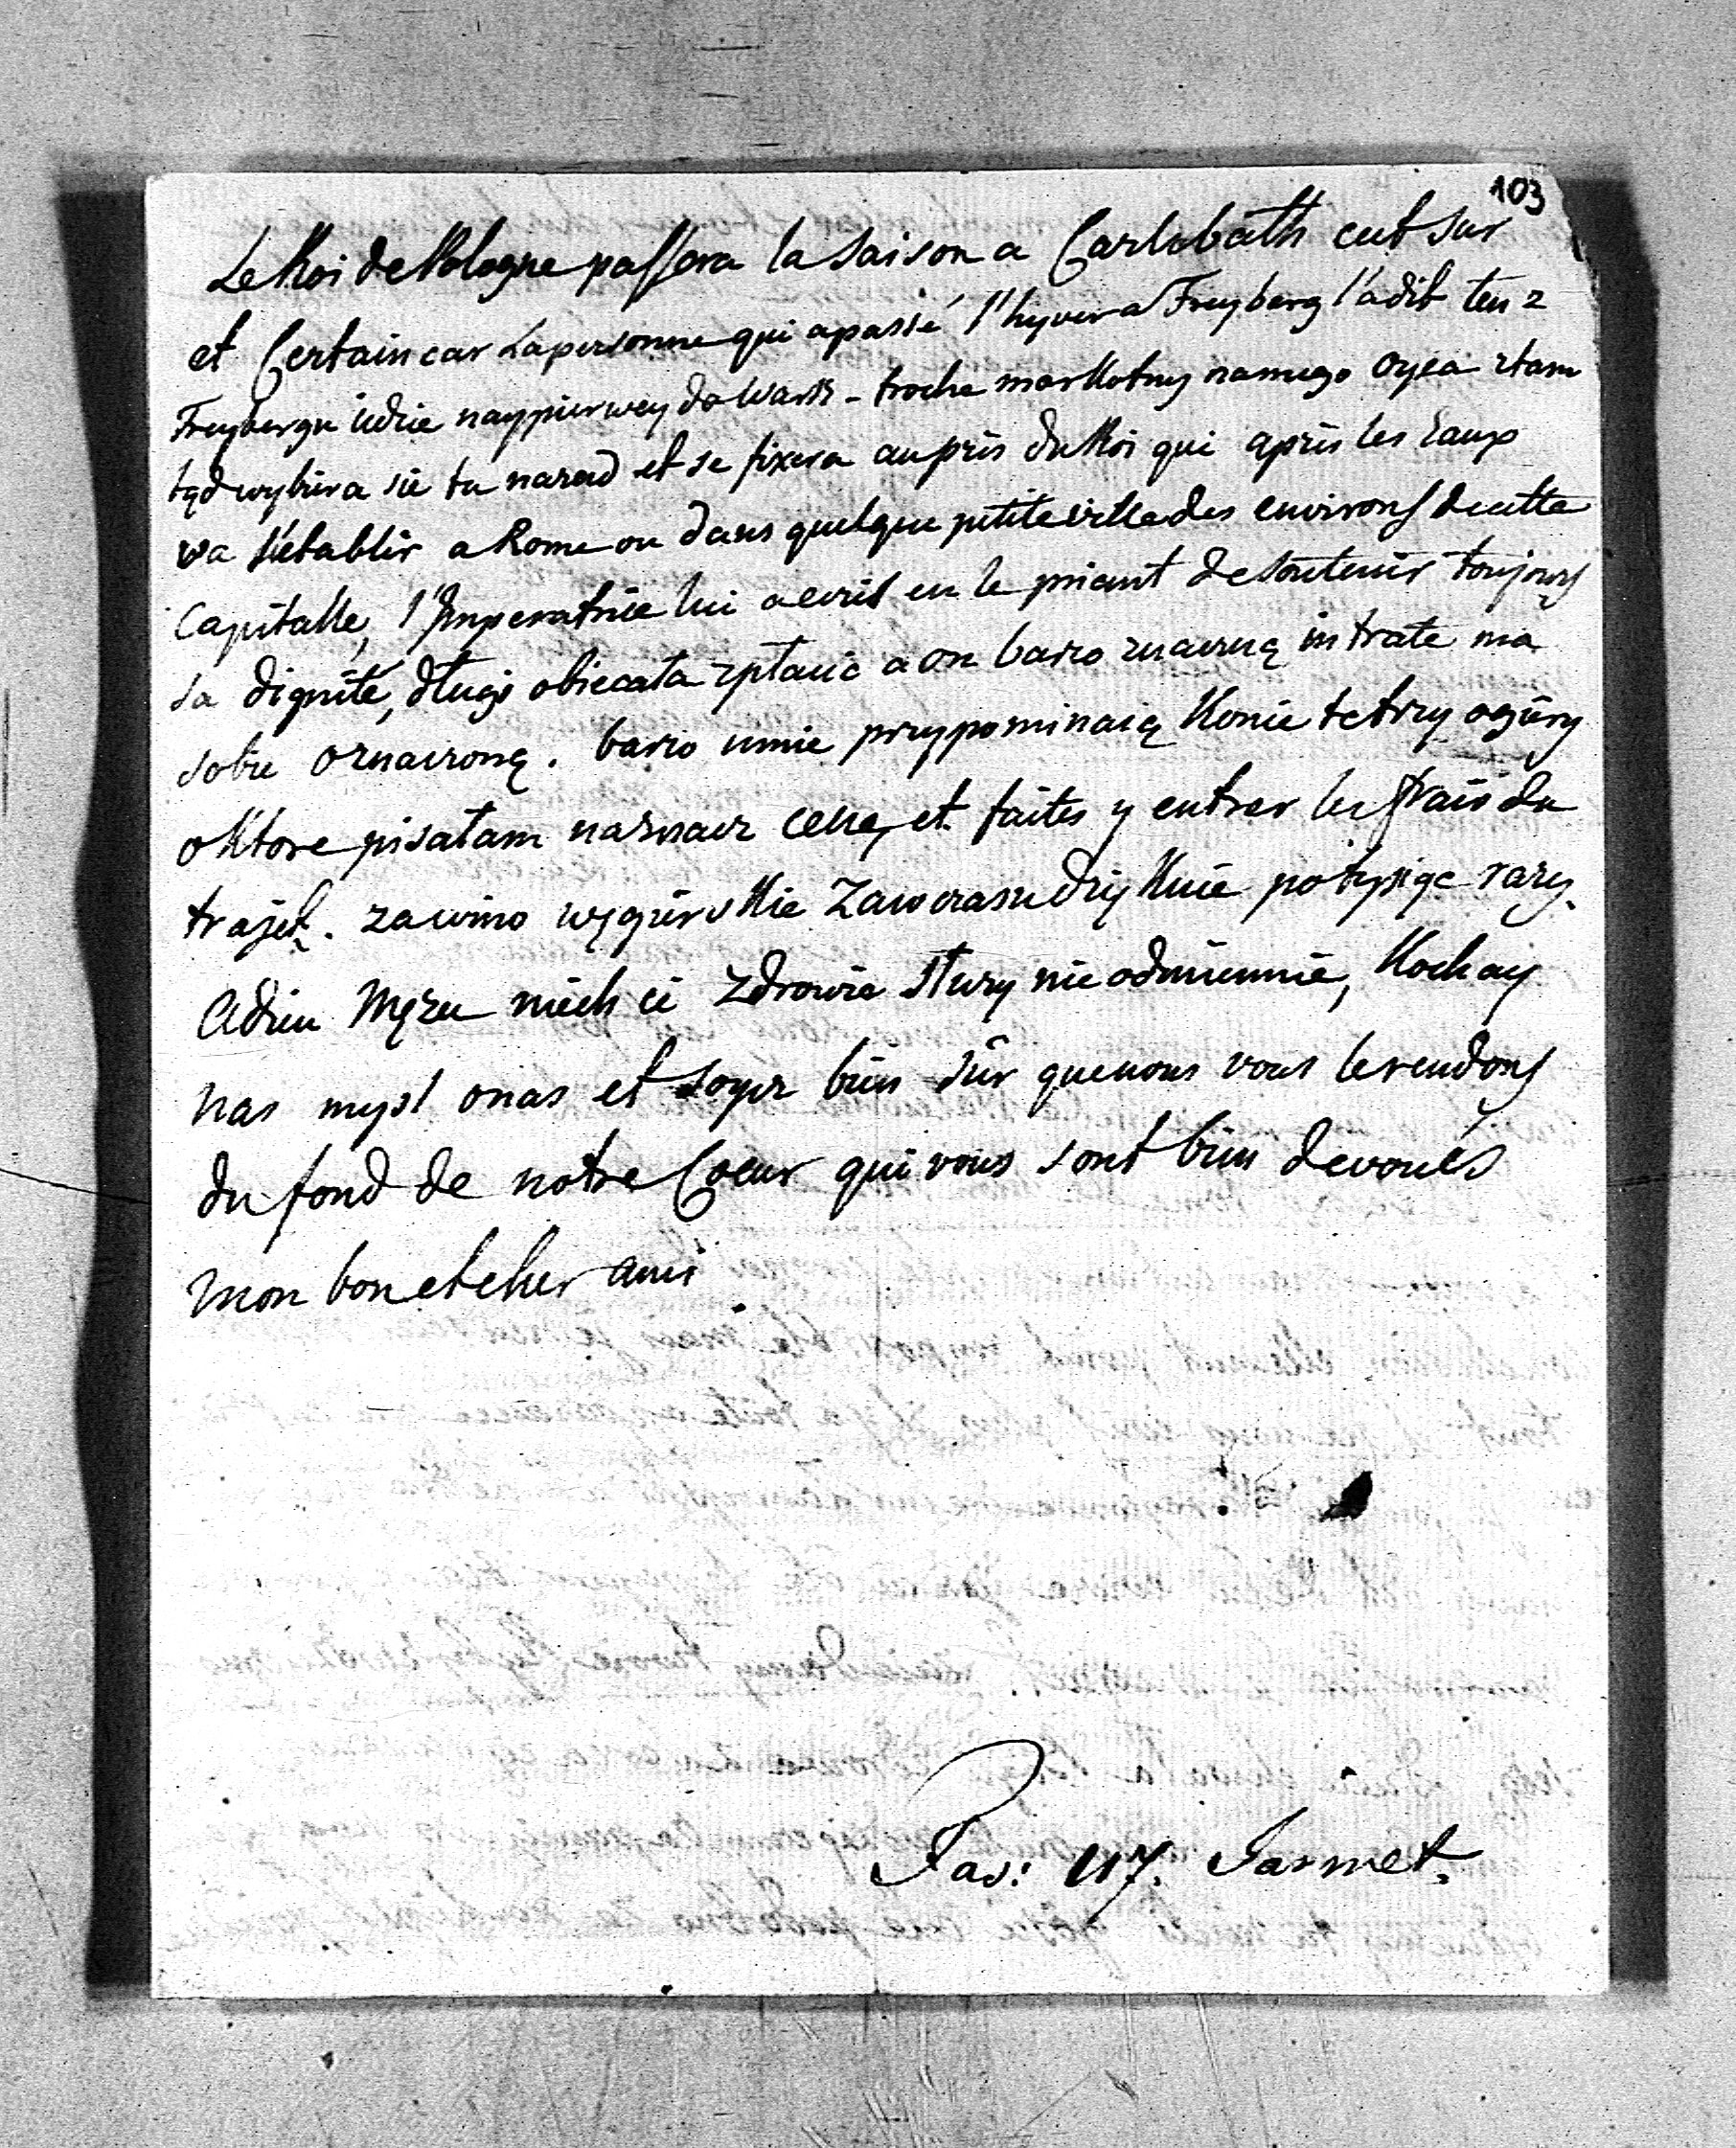 103
Le Roi de Pologne passera la saison a Carlsbath cest sur
et Certain car La personne qui a passé l'hyver a Freyberg l'a dit ten z
Freybergu iedzie naypierwey do Wars - troche markotny na mego Oyca ztam
tąd wybiera sie tu nazad et se fixera aupris du Roi qui apris les Eaux
va s'etablir a Rome ou dans quelque petite ville des environs de cette
Capitalle, l'Imperatrice lui a ecrit en le priant de soutenir toujours
sa dignité, dlugi obiecała zpłacic a on barzo znaczną intrate ma
sobie oznaczoną. barzo umie przypominaią Konie te trzy ogiery
o Ktore pisałam naznacz cene, et faites y entrer les frais du
trajet. za wino węgierskie Zawczasu dzięKuie po tysiąc razy.
Adieu Mężu niech ci Zdrowie służy nieodmiennie, Kochay
nas mysl o nas et soyez bien sûr que nous vous le rendons
du fond de notre Coeur qui vous sont bien devoués
mon bon et cher ami